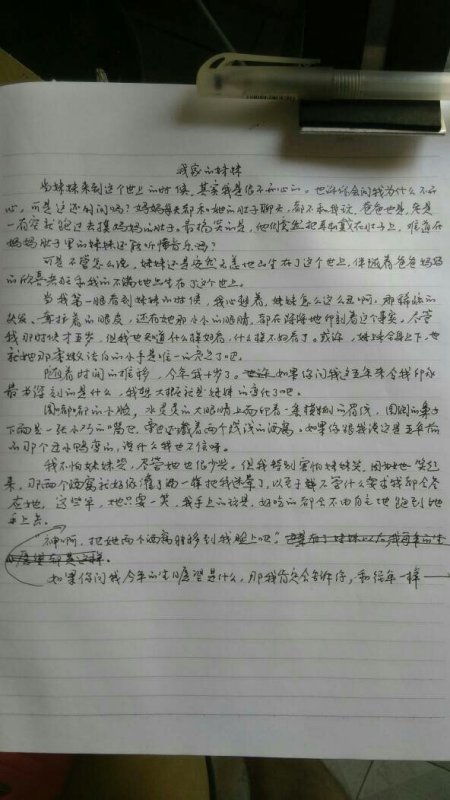 我家的妹妹
当妹妹来到这个世上的时候,其实我是挺不开心的。也许你会问我为什么不开
心,可是这还用问吗?妈妈每天都和她的肚子聊天,都不和我说,爸爸也是,老是
一有空就跑过去摸妈妈的肚子。最搞笑的是,他们竟然把耳机戴在肚子上,难道在
妈妈肚子里的妹妹还能听懂音乐吗?
可是不管怎么说,妹妹还是安然无恙地出生在了这个世上,伴随着爸爸妈妈
的欣喜去和我的不满地出生在了这个世上。
当我第一眼看到妹妹的时候,我心想着,妹妹怎么这么丑啊,那稀疏的
头发,耷拉着的眼皮,还有她那小小的眼睛,都在深深地印刻着这个事实。尽管
我那时候才五岁,但我也知道什么样好看,什么样不好看了。或许,妹妹全身上下,也
就她那双嫩白的小手是唯一的亮点了吧。
随着时间的推移,今年我十岁了。如果你问我这五年来令我印象
最为深刻的是什么,我想大概就是妹妹的变化了吧。
圆嘟嘟的小脸,水灵灵的大眼睛上面印着一条横横的眉线,圆圆的鼻子
下面是一张小巧的嘴巴,旁边还藏着两个浅浅的酒窝。如果你跟我说这是五年前
的那个丑小鸭变的,说什么我也不信呀。
我不怕妹妹哭,尽管她也很少哭。但我特别害怕妹妹笑,因为她一笑起
来,那两个酒窝就好像灌了酒一样把我迷晕了,以至于无论什么要求我都会答
应她,这些年,她只要一笑,我手上的玩具,好吃的都会不由自主地跑到她
手上去。
神啊,把她两个酒窝转移到我脸上吧!
如果你问我今年的生日愿望是什么,那我肯定会告诉你,和往年一样——